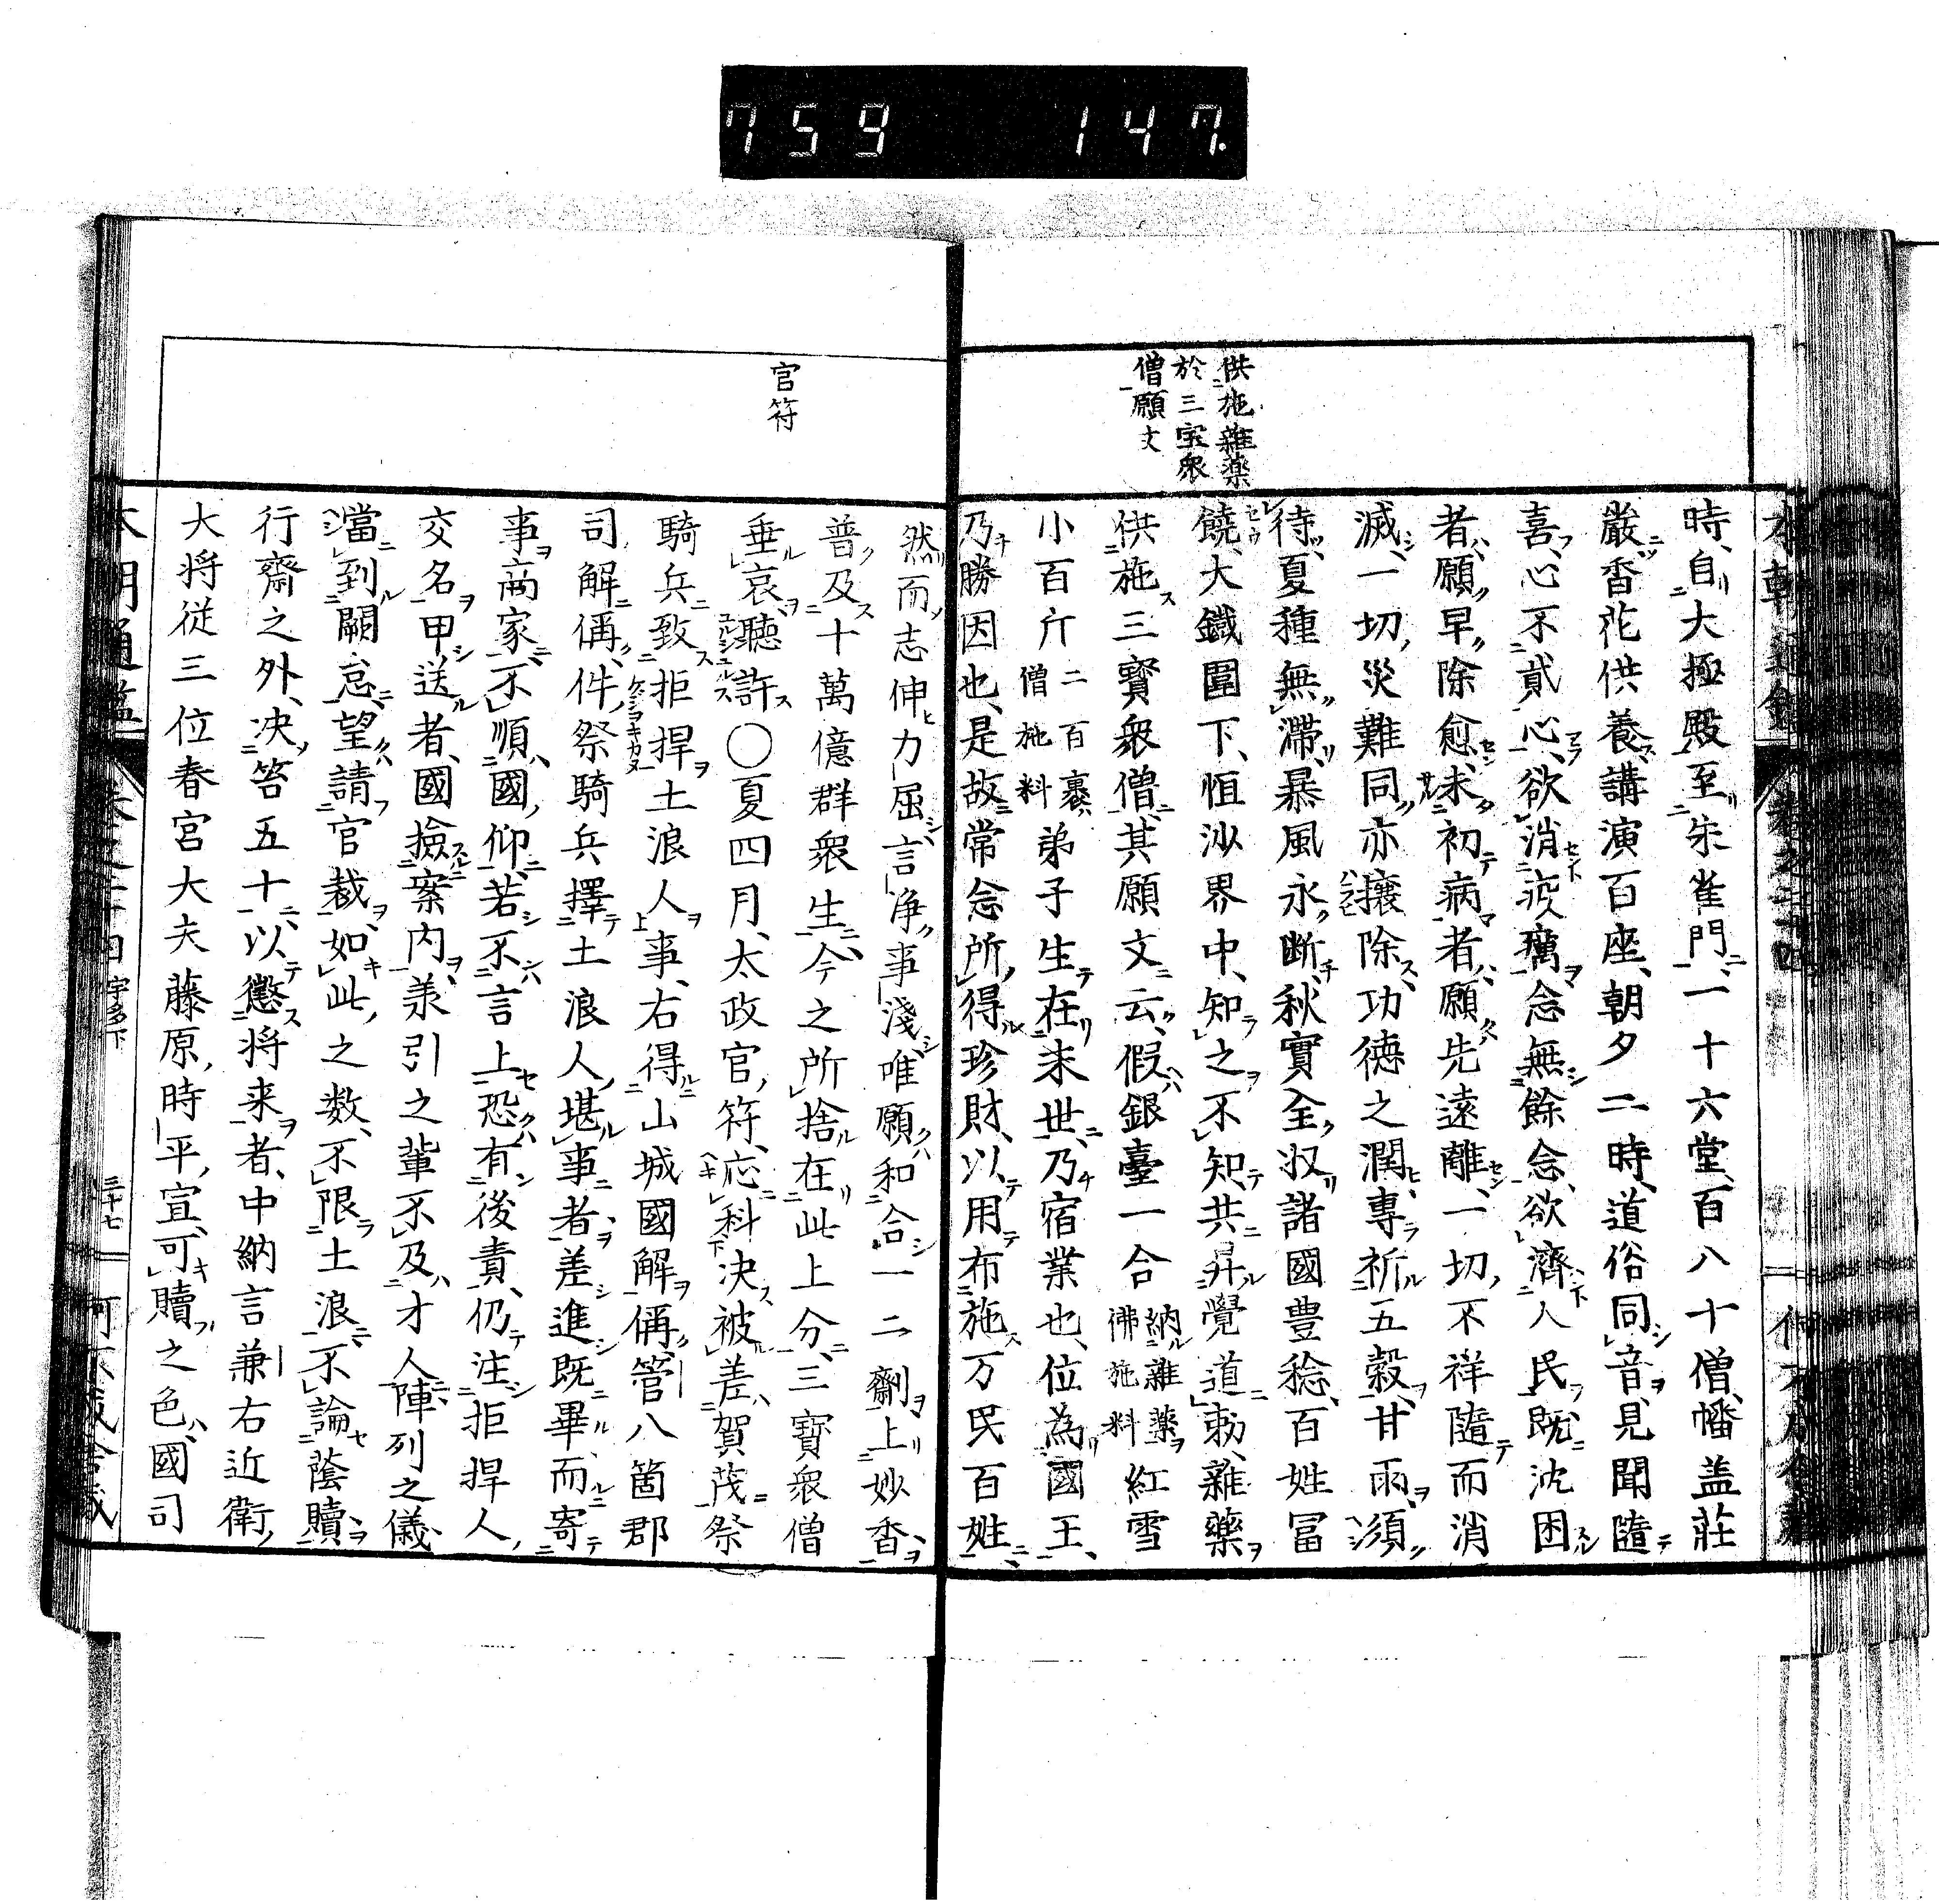 759 147.
供施雜藥
於三宝衆
僧願文
時、自大極殿至朱雀門、一十六堂、百八十僧、幡盖莊
嚴、香花供養、講演百座、朝夕二時、道俗同音、見聞隨
喜、心不貳心、欲消疫癘、念無餘念、欲濟人民、既沈困
者、願早除愈、未初病者、願先遠離、一切不祥隨而消
滅、一切災難同亦攘除、功徳之潤、專祈五穀、甘雨須
待、夏種無滯、暴風永断、秋實全収、諸國豊稔、百姓冨
饒、大鐵圍下、恒沙界中、知之不知共昇覺道、勅、雜藥
供施三寳衆僧、其願文云、假銀臺一合納雜藥佛施料紅雪
小百斤二百裹僧施料弟子生在末世、乃宿業也、位為國王、
乃勝因也、是故常念所得珍財、以用布施万民百姓、
官符
然而志伸力屈、言浄事淺、唯願和合一二劑上妙香、
普及十萬億群衆生、今之所捨在此上分、三寳衆僧
垂哀聽許〇夏四月、太政官符、応科决被差賀茂祭
騎兵致拒捍土浪人事、右得山城國解偁、管八箇郡
司解偁、件祭騎兵擇土浪人堪事者、差進既畢而寄
事商家、不順國仰、若不言上恐有後責、仍注拒捍人
交名申送者、國撿案内、羕引之輩不及、才人陣列之儀、
當到闕怠、望請官裁、如此之数、不限土浪、不論蔭贖、
行齋之外、决笞五十、以懲将来者、中納言兼右近衛
大将従三位春宮大夫藤原時平宣、可贖之色、國司
本朝通鑑
卷之二十四 宇多下
三十七